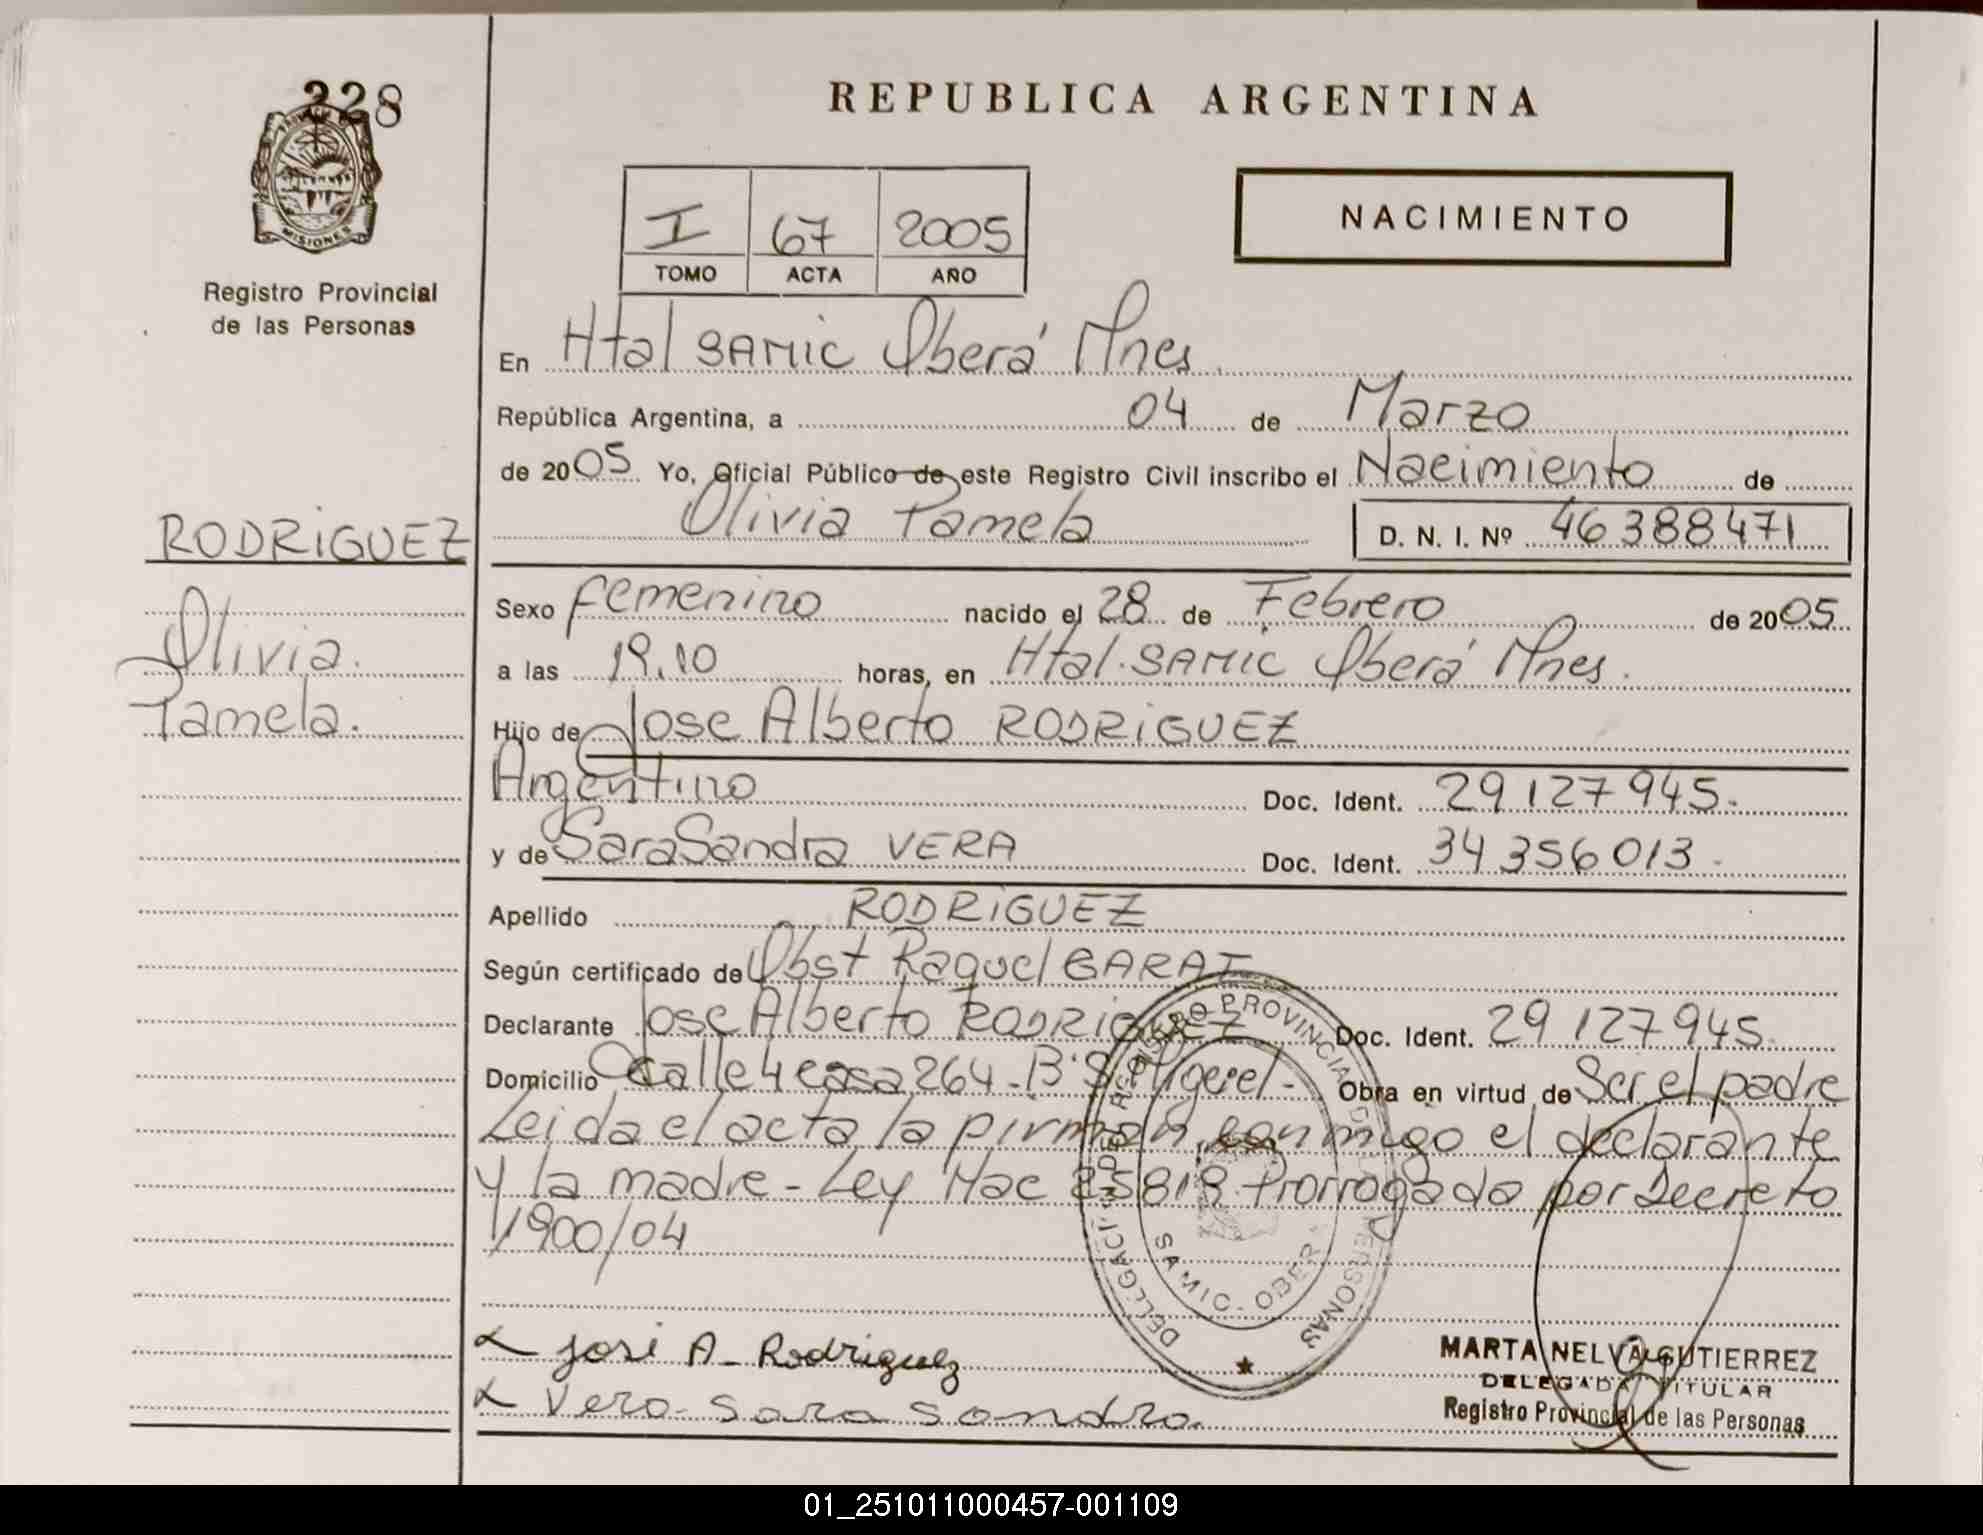 228
MISIONES
Registro Provincial
de las Personas
RODRIGUEZ
Olivia
Pamela.
REPUBLICA ARGENTINA
NACIMIENTO
I 67 2005
TOMO ACTA AÑO
En Htal SAMIC Oberá Mnes
República Argentina, a 04 de Marzo
de 2005 Yo, Oficial Público de este Registro Civil inscribo el Nacimiento de
Olivia Pamela D. N. I. Nº 46388471
Sexo femenino nacido el 28 de Febrero de 2005
a las 19.10 horas, en Htal. SAMIC Oberá Mnes.
Hijo de Jose Alberto RODRIGUEZ
Argentino Doc. Ident. 29127945.
y de Sara Sandra VERA Doc. Ident. 34356013.
Apellido RODRIGUEZ
Según certificado de Obst Raquel GARAT
Declarante Jose Alberto RODRIGUEZ Doc. Ident. 29127945.
Domicilio Calle 4 casa 264 - Bº S. Miguel - Obra en virtud de Ser el padre
Leida el acta la firman conmigo el declarante
y la madre - Ley Nac 25819 Prorrogada por Decreto
1900/04
DELEGACION DEL REGISTRO PROVINCIAL DE LAS PERSONAS
SAMIC - OBERA
José A- Rodriguez
Vera Sara Sandra
MARTA NELVA GUTIERREZ
DELEGADA TITULAR
Registro Provincial de las Personas
01_251011000457-001109